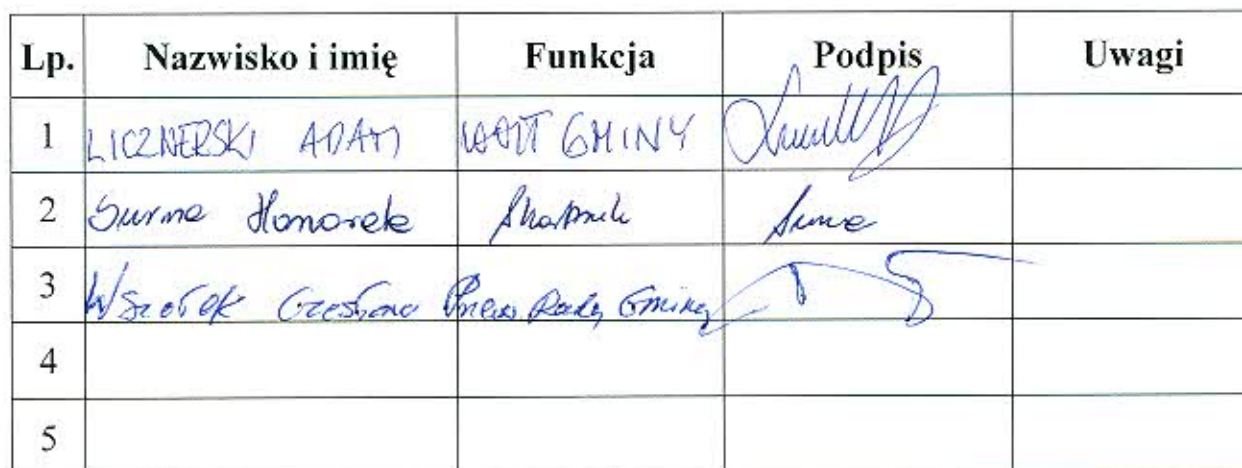 Lp. Nazwisko i imię Funkcja Podpis Uwagi
1 LICZNERSKI ADAM WÓJT GMINY
2 Surma Honorata Skarbnik Surma
3 Wszołek Czesława Przew. Rady Gminy
4
5